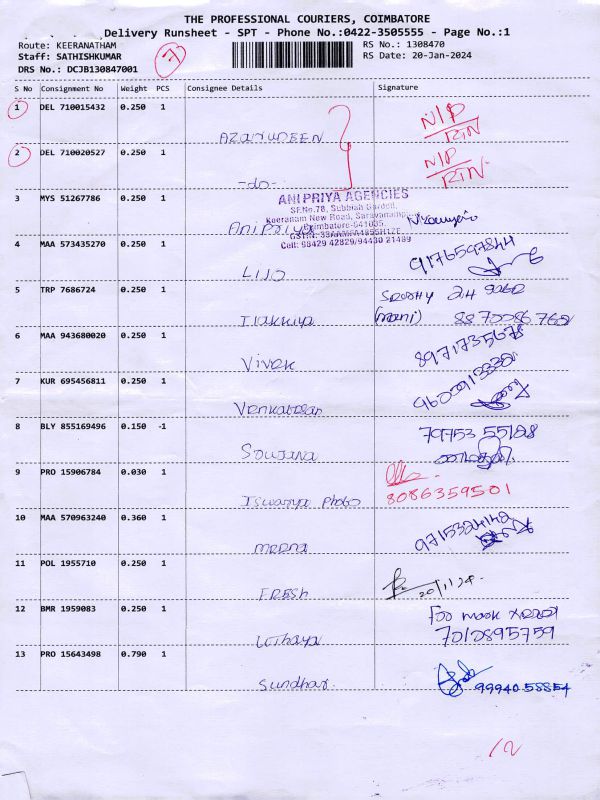 THE PROFESSIONAL COURIERS, COIMBATORE
Delivery Runsheet - SPT - Phone No.:0422-3505555 - Page No.:1
Route: KEERANATHAM
RS No.: 1308470
Staff: SATHISHKUMAR
RS Date: 20-Jan-2024
DRS No.: DCJB130847001
7
S No Consignment No Weight PCS Consignee Details Signature
1 DEL 710015432 0.250 1
AZARUDEEN N/P
RTN
2 DEL 710020527 0.250 1
-do- N/P
RTN
3 MYS 51267786 0.250 1
ANI PRIYA AGENCIES
SF.No.78, Subbiah Garden,
Keeranam New Road, Saravanampatti
Coimbatore-641035.
Cell: 98429 42829/94430 21489
Ani Priya
4 MAA 573435270 0.250 1
LIJO 9176597844
5 TRP 7686724 0.250 1
Ilakkiya (mani)
6 MAA 943680020 0.250 1
Vivek 8971735678
7 KUR 695456811 0.250 1
Venkatesan
8 BLY 855169496 0.150 -1
Soujana 79753 55128
9 PRO 15906784 0.030 1
Iswarya Photo 8086359501
10 MAA 570963240 0.360 1
meena 9715324142
11 POL 1955710 0.250 1
FRESH 20/1/24.
12 BMR 1959083 0.250 1
7010895759
13 PRO 15643498 0.790 1
Sundhar. 99940 58854
12